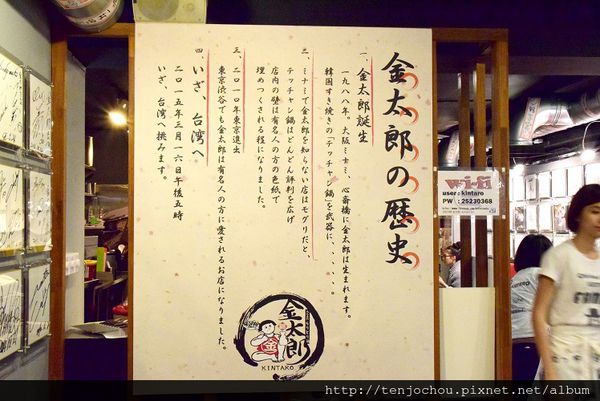 金太郎の歴史
一、金太郎誕生
一九八八年、大阪ミナミ、心斎橋に金太郎は生まれます。
韓国すき焼きの「テッチャン鍋」を武器に、、、、、
二、ミナミで金太郎を知らない店はモグリだと
テッチャン鍋はどんどん評判を広げ
店内の壁は有名人の方の色紙で
埋めつくされる程になりました。
三、二〇一〇年東京進出
東京渋谷でも金太郎は有名人の方に愛されるお店になりました。
四、いざ、台湾へ
二〇一五年三月一六日午後五時
いざ、台湾へ挑みます。
金太郎
金
KINTARO
wi-fi
user : kintaro
PW : 25230368
http://tenjochou.pixnet.net/album